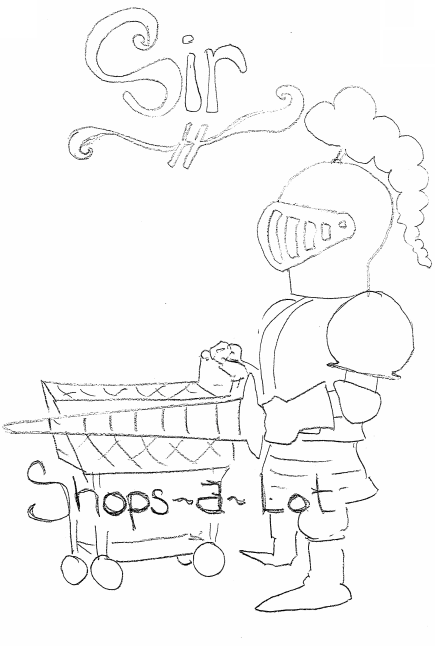 Sir
Shops~a~Lot